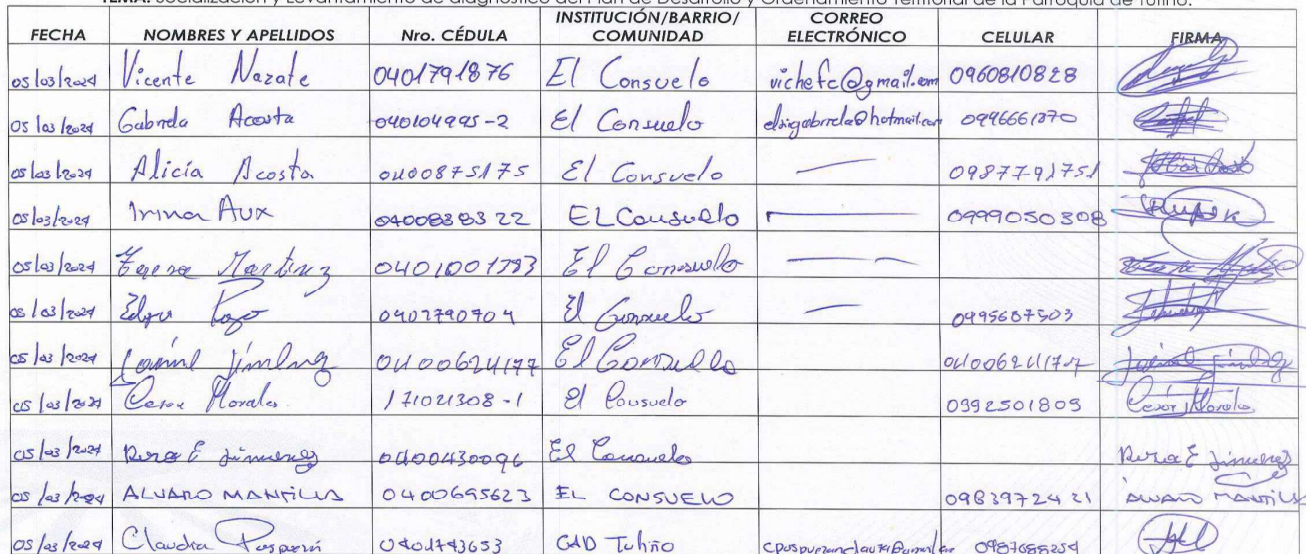 TEMA: Socialización y Levantamiento de diagnóstico del Plan de Desarrollo y Ordenamiento Territorial de la Parroquia de Tufiño.
FECHA NOMBRES Y APELLIDOS Nro. CÉDULA INSTITUCIÓN/BARRIO/COMUNIDAD CORREO ELECTRÓNICO CELULAR FIRMA
05/03/2024 Vicente Nazate 0401791876 El Consuelo vichefc@gmail.com 0960810828
05/03/2024 Gabriela Acosta 040104995-2 El Consuelo 0996661270
05/03/2024 Alicia Acosta 0400875175 El Consuelo — 0987791751
05/03/2024 Irina Aux 0400838322 EL Consuelo — 0999050308
05/03/2024 Martinez 0401001383 El Consuelo —
05/03/2024 Edgar Pozo El Consuelo — 0995607503
05/03/2024 Jiménez 0400624177 El Consuelo
05/03/2024 Cesar Morales 171021308-1 El Consuelo 0992501809 Cesar Morales
05/03/2024 Rosa E Jimenez 0400430096 El Consuelo Rosa E Jimenez
05/03/2024 ALVARO MANTILLA 0400695623 EL CONSUELO 0983972421 ALVARO MANTILLA
05/03/2024 Claudia 0401743653 GAD Tufiño